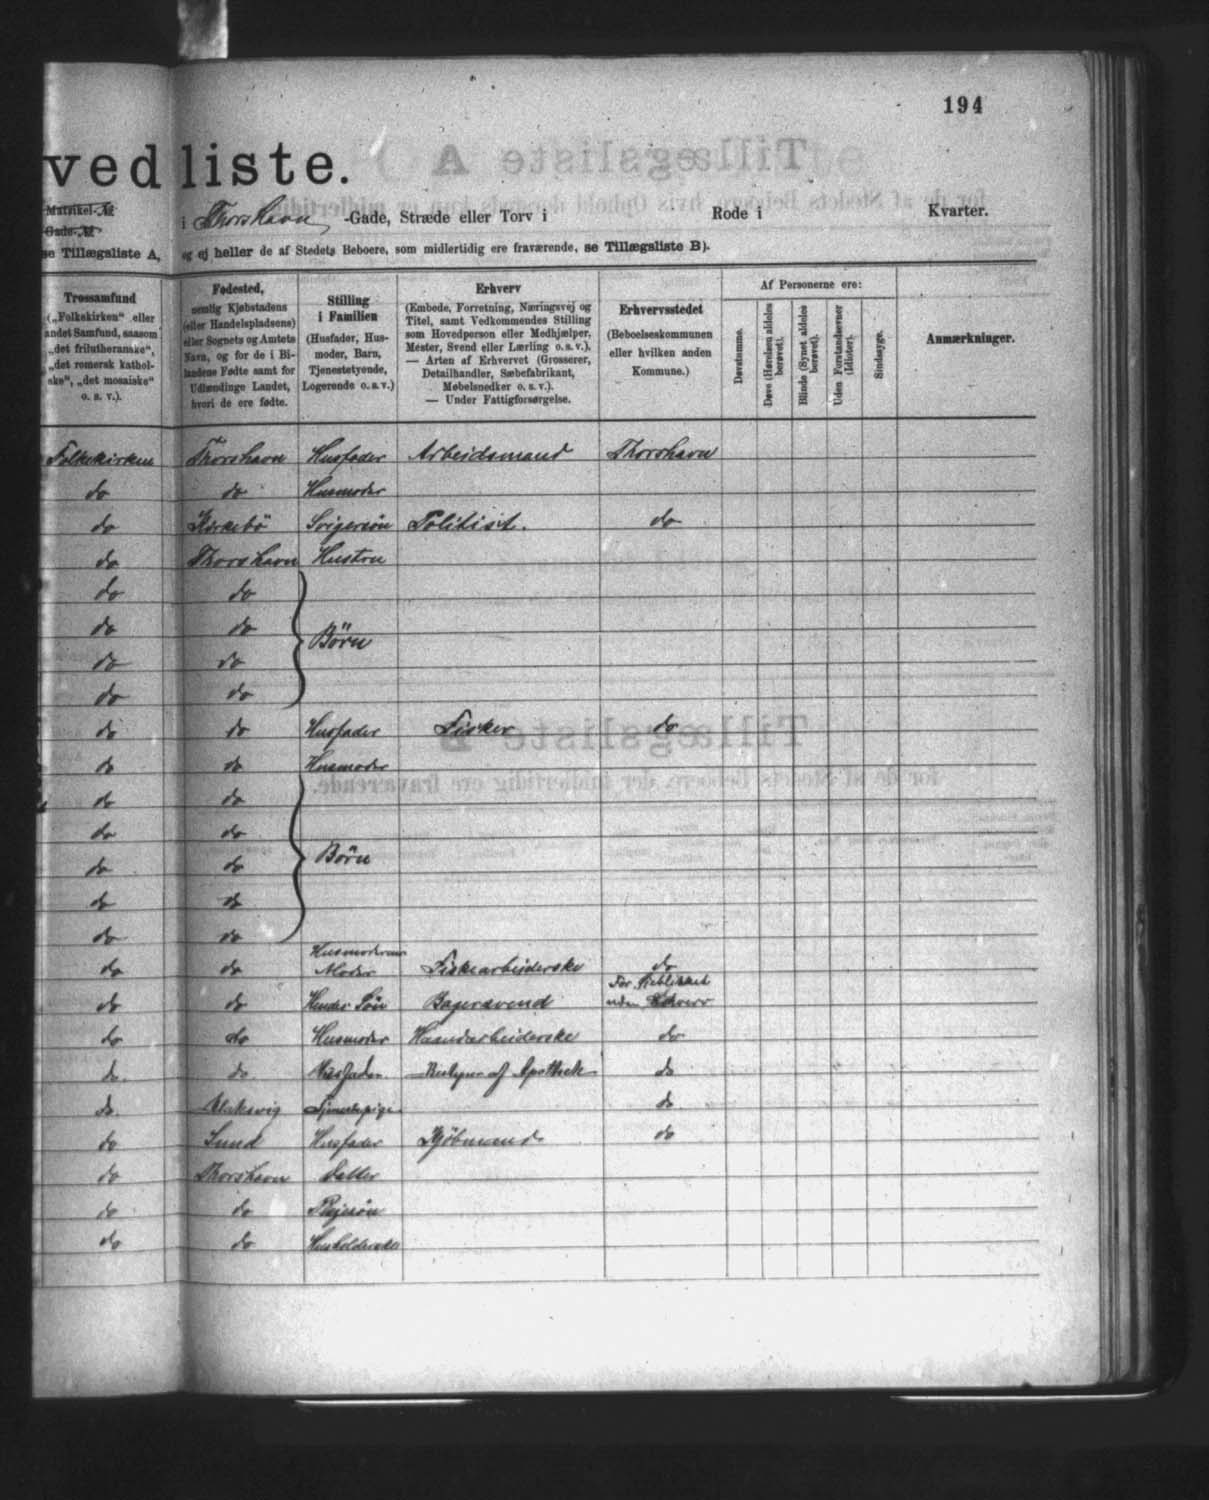 194
vedliste.
Matrikel-№
Gade-№
i Thorshavn -Gade, Stræde eller Torv i Rode i Kvarter.
se Tillægsliste A, og ej heller de af Stedets Beboere, som midlertidig ere fraværende, se Tillægsliste B).
Trossamfund
(„Folkekirken“ eller
andet Samfund, saasom
„det frilutheranske“,
„det romersk kathol-
ske“, „det mosaiske“
o. s. v.).
Fødested,
nemlig Kjøbstadens
(eller Handelspladsens)
eller Sognets og Amtets
Navn, og for de i Bi-
landene Fødte samt for
Udlændinge Landet,
hvori de ere fødte.
Stilling
i Familien
(Husfader, Hus-
moder, Barn,
Tjenestetyende,
Logerende o. s. v.)
Erhverv
(Embede, Forretning, Næringsvej og
Titel, samt Vedkommendes Stilling
som Hovedperson eller Medhjælper,
Mester, Svend eller Lærling o. s. v.).
— Arten af Erhvervet (Grosserer,
Detailhandler, Sæbefabrikant,
Møbelsnedker o. s. v.).
— Under Fattigforsørgelse.
Erhvervsstedet
(Beboelseskommunen
eller hvilken anden
Kommune.)
Af Personerne ere:
Døvstumme.
Døve (Hørelsen aldeles
berøvet).
Blinde (Synet aldeles
berøvet).
Uden Forstandsevner
(Idioter).
Sindssyge.
Anmærkninger.
Folkekirken Thorshavn Husfader Arbeidsmand Thorshavn
do do Husmoder
do Kirkebø Svigersøn Politist. do
do Thorshavn Hustru
do do
do do Børn
do do
do do
do do Husfader Fisker do
do do Husmoder
do do
do do
do do Børn
do do
do do
Husmoderens
do do Moder Fiskearbeiderske do
For Øieblikket
do do Hendes Søn Bagersvend uden Erhverv
do do Husmoder Haandarbeiderske do
do do Husfader Bestyrer af Apothek do
do Klaksvig Tjenestepige do
do Sund Husfader Kjøbmand do
do Thorshavn Datter
do do Plejesøn
do do Husholderske